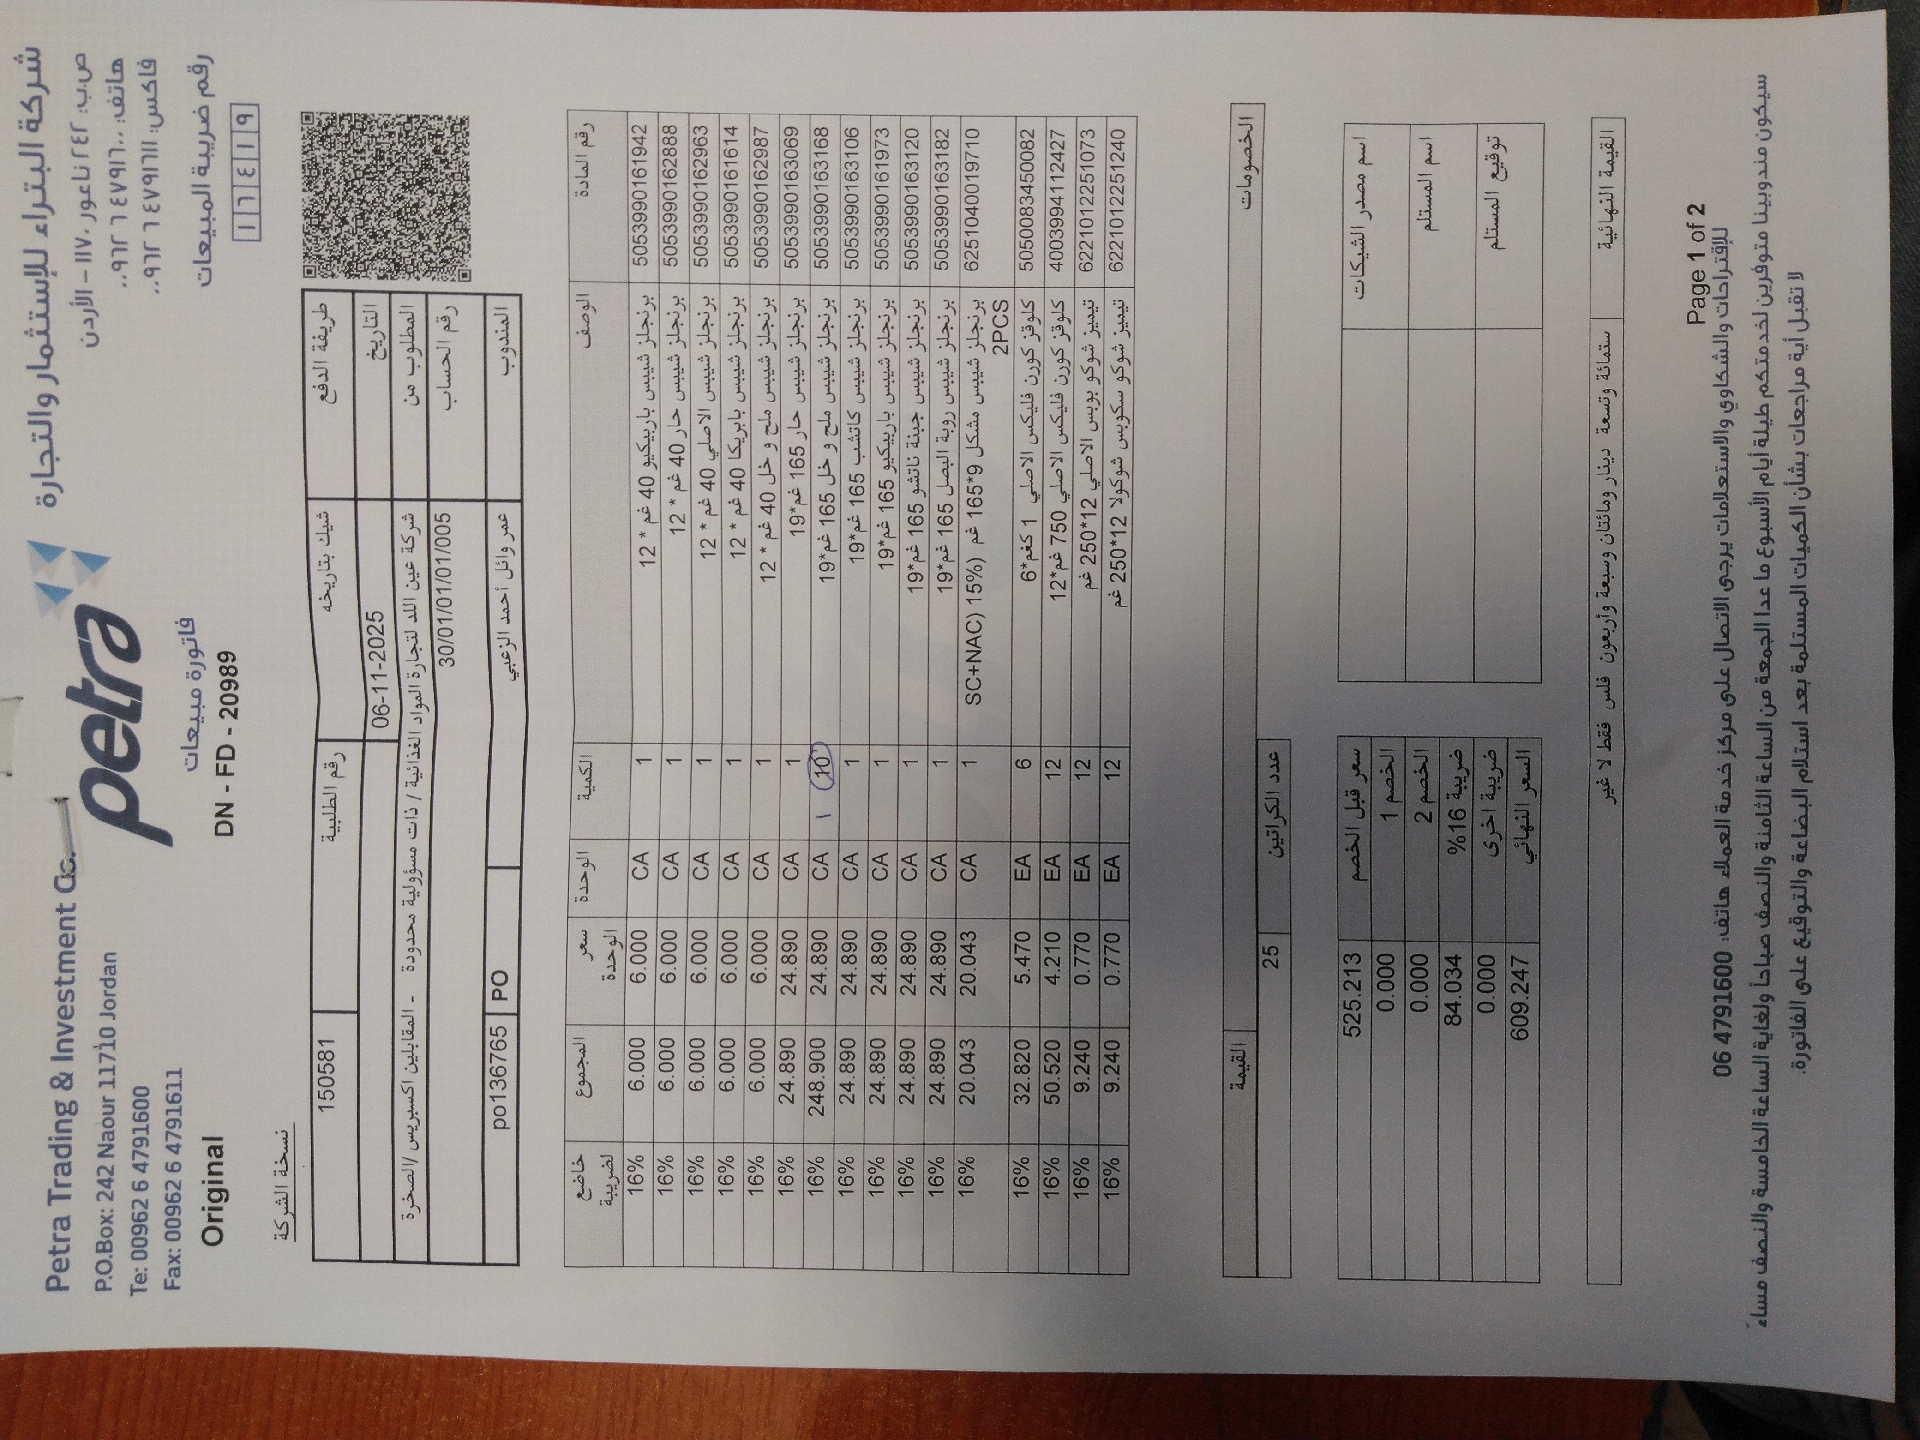 Petra Trading & Investment Co.
P.O.Box: 242 Naour 11710 Jordan
Te: 00962 6 4791600
Fax: 00962 6 4791611
petra
شركة البتراء للإستثمار والتجارة
ص.ب: ٢٤٢ ناعور ١١٧١٠ – الأردن
هاتف: ٤٧٩١٦٠٠ ٦ ٠٠٩٦٢
فاكس: ٤٧٩١٦١١ ٦ ٠٠٩٦٢
رقم ضريبة المبيعات
١١٦٤١٩
فاتورة مبيعات
Original
DN - FD - 20989
نسخة الشركة
طريقة الدفع شيك بتاريخه رقم الطلبية 150581
التاريخ 06-11-2025
المطلوب من شركة عين اللد لتجارة المواد الغذائية / ذات مسؤولية محدودة - المقابلين اكسبريس /الصخرة
رقم الحساب 30/01/01/01/005
المندوب عمر وائل أحمد الزعبي PO po136765
رقم المادة الوصف الكمية الوحدة سعر الوحدة المجموع خاضع لضريبة
5053990161942 برنجلز شيبس باربيكيو 40 غم * 12 1 CA 6.000 6.000 16%
5053990162888 برنجلز شيبس حار 40 غم * 12 1 CA 6.000 6.000 16%
5053990162963 برنجلز شيبس الاصلي 40 غم * 12 1 CA 6.000 6.000 16%
5053990161614 برنجلز شيبس بابريكا 40 غم * 12 1 CA 6.000 6.000 16%
5053990162987 برنجلز شيبس ملح و خل 40 غم * 12 1 CA 6.000 6.000 16%
5053990163069 برنجلز شيبس حار 165 غم*19 1 CA 24.890 24.890 16%
5053990163168 برنجلز شيبس ملح و خل 165 غم*19 10 ١ CA 24.890 248.900 16%
5053990163106 برنجلز شيبس كاتشب 165 غم*19 1 CA 24.890 24.890 16%
5053990161973 برنجلز شيبس باربيكيو 165 غم*19 1 CA 24.890 24.890 16%
5053990163120 برنجلز شيبس جبنة ناتشو 165 غم*19 1 CA 24.890 24.890 16%
5053990163182 برنجلز شيبس روبة البصل 165 غم*19 1 CA 24.890 24.890 16%
6251040019710 برنجلز شيبس مشكل 9*165 غم (15% SC+NAC) 1 CA 20.043 20.043 16%
2PCS
5050083450082 كلوقز كورن فليكس الاصلي 1 كغم*6 6 EA 5.470 32.820 16%
4003994112427 كلوقز كورن فليكس الاصلي 750 غم*12 12 EA 4.210 50.520 16%
6221012251073 تيميز شوكو بوبس الاصلي 12*250 غم 12 EA 0.770 9.240 16%
6221012251240 تيميز شوكو سكوبس شوكولا 12*250 غم 12 EA 0.770 9.240 16%
الخصومات عدد الكراتين القيمة
25
سعر قبل الخصم 525.213
الخصم 1 0.000
الخصم 2 0.000
ضريبة 16% 84.034
ضريبة اخرى 0.000
السعر النهائي 609.247
اسم مصدر الشيكات
اسم المستلم
توقيع المستلم
القيمة النهائية ستمائة وتسعة دينار ومائتان وسبعة وأربعون فلس فقط لا غير
Page 1 of 2
للإقتراحات والشكاوي والاستعلامات يرجى الاتصال على مركز خدمة العملاء هاتف: 06 4791600
سيكون مندوبينا متوفرين لخدمتكم طيلة أيام الأسبوع ما عدا الجمعة من الساعة الثامنة والنصف صباحاً ولغاية الساعة الخامسة والنصف مساءً
لا تقبل أية مراجعات بشأن الكميات المستلمة بعد استلام البضاعة والتوقيع على الفاتورة.